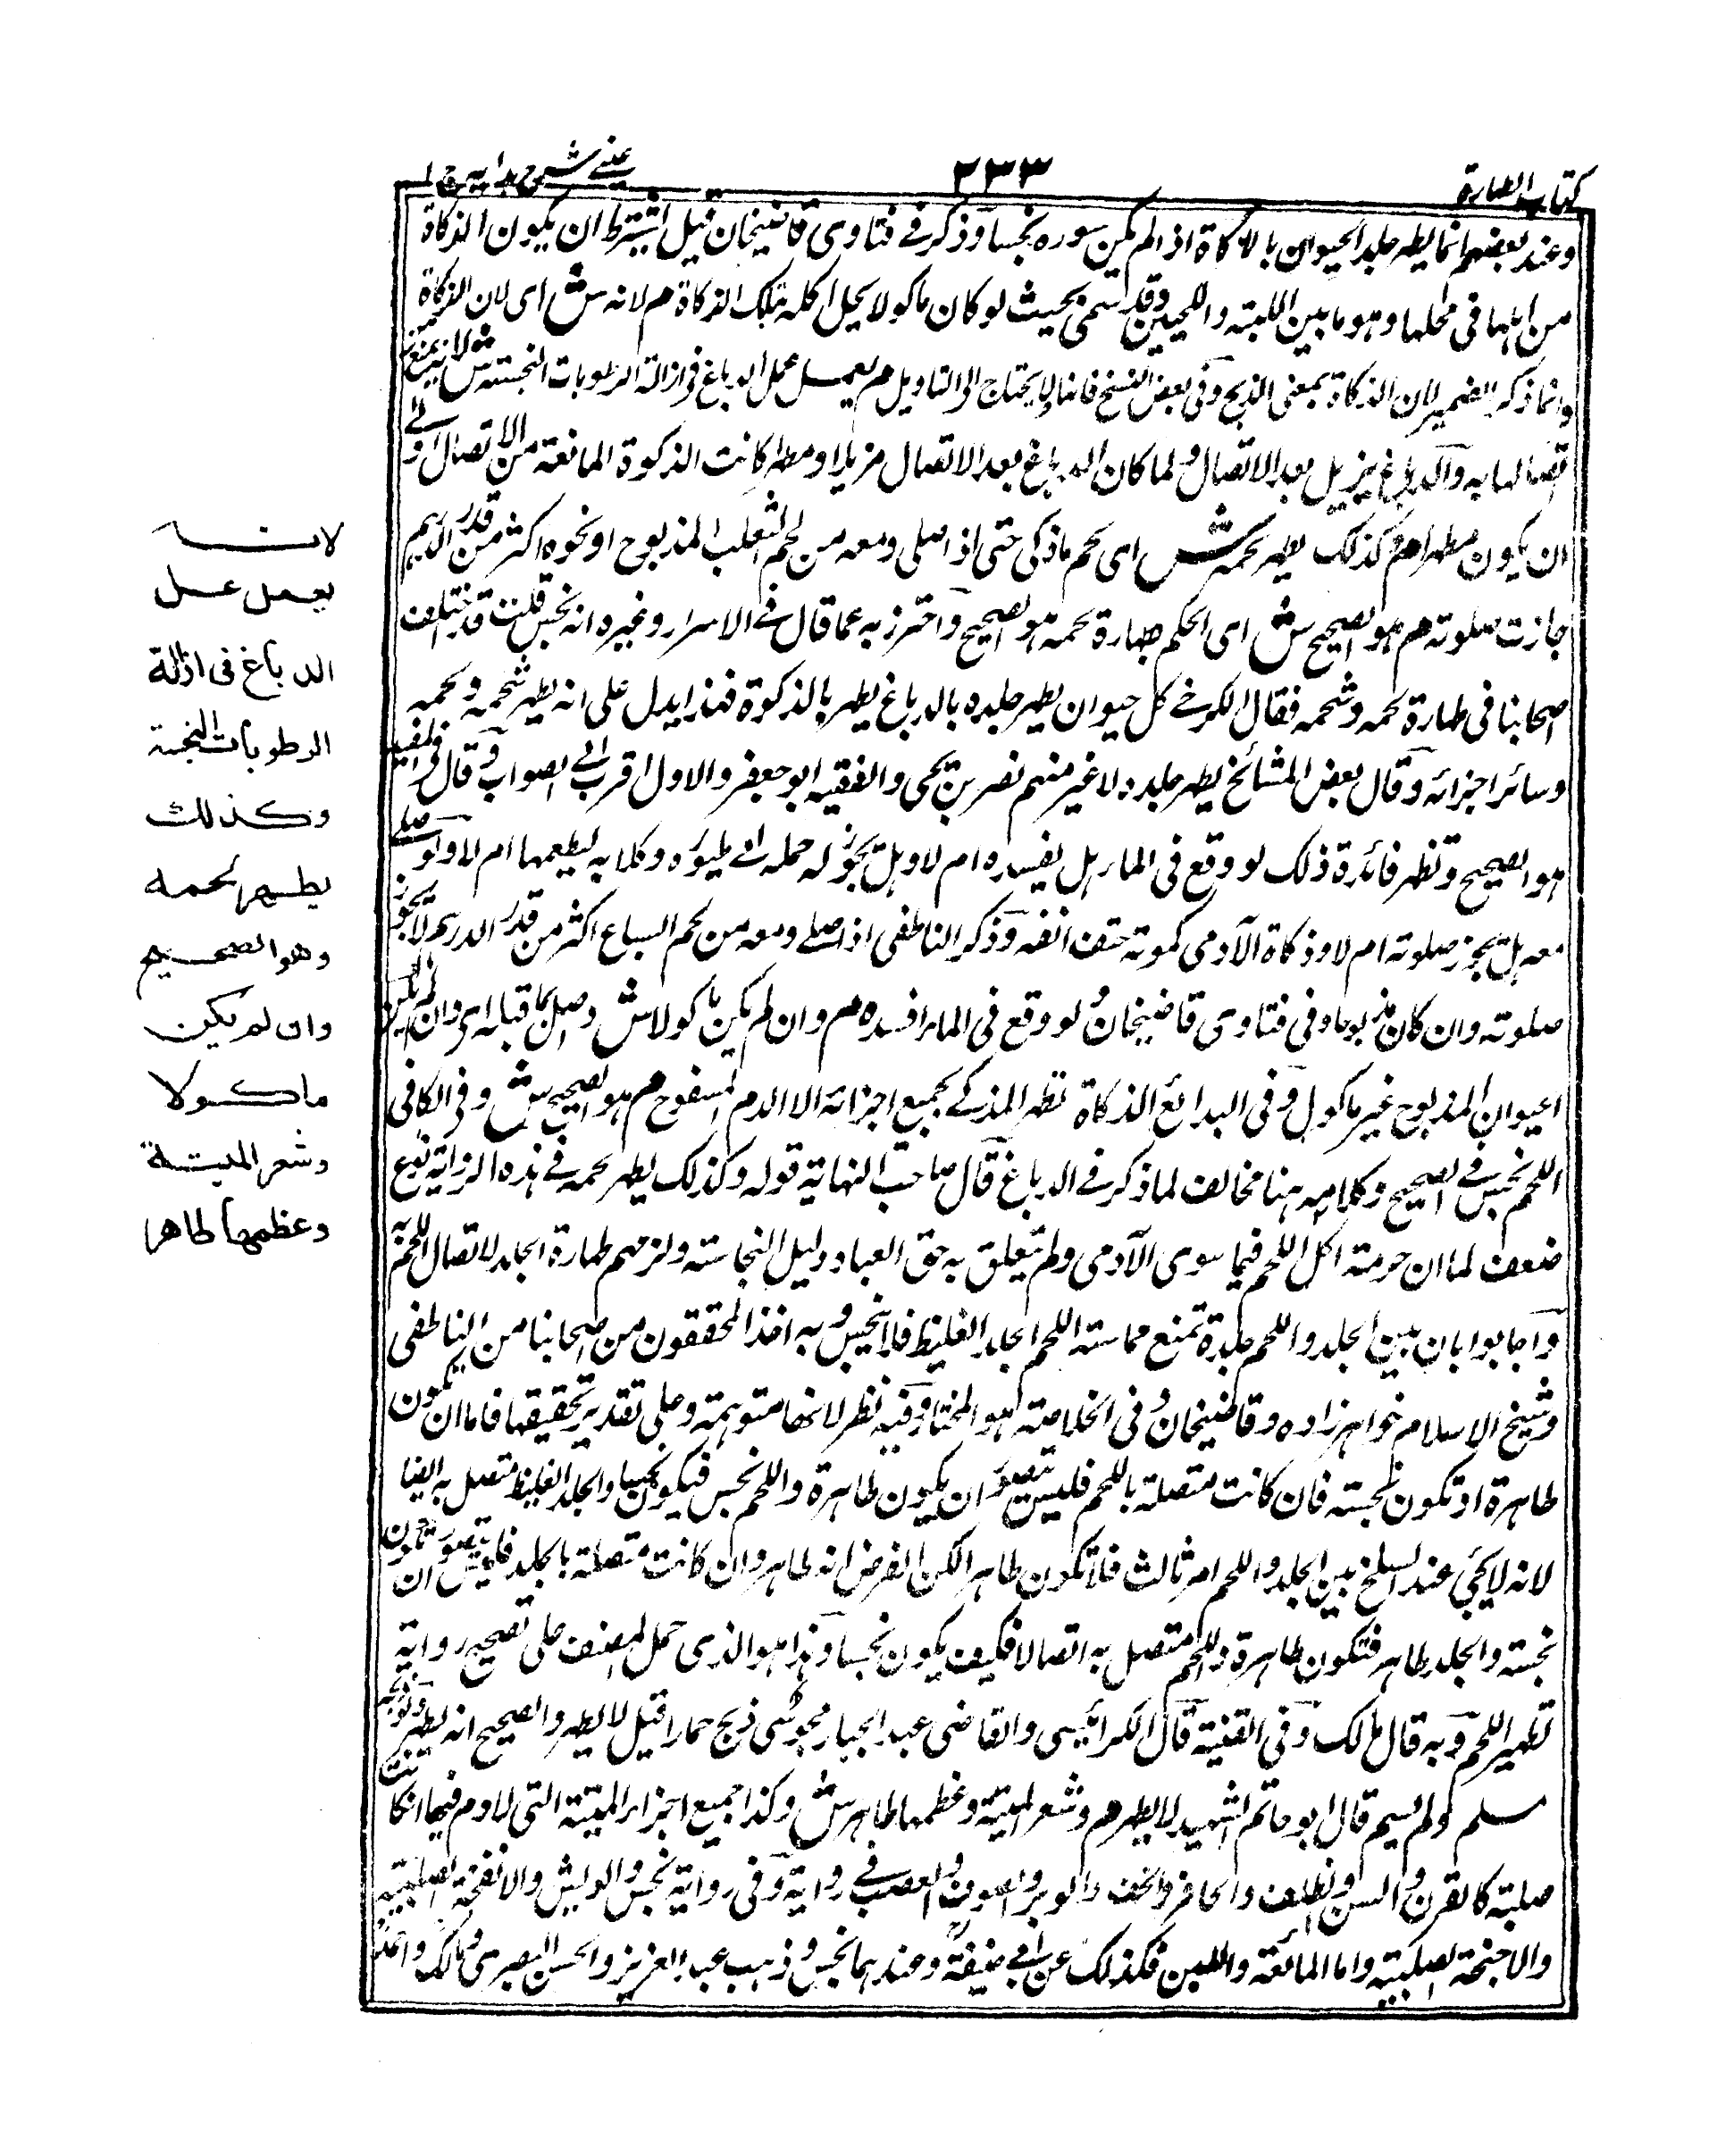 كتاب الطهارة
٢٣٣
عيني شرح هدايه ج ١
وعند بعضهم انما يطهر جلد الحيوان بالذكاة اذا لم يكن سوره نجسا وذكر في فتاوى قاضيخان قيل يشترط ان يكون الذكاة
من اهلها في محلها وهو ما بين اللبته واللحيين وقد سمى بحيث لو كان ماكولا يحل اكله بتلك الذكاة م لانه ش اى لان الذكاة
وانما ذكر الضمير لان الذكاة بمعنى الذبح وفي بعض النسخ فانها ولا يحتاج الى التاويل م يعمل عمل الدباغ في ازالة الرطوبات النجسته ش لانه يمنع
اتصالها به والدباغ يزيل بعد الاتصال ولما كان الدباغ بعد الاتصال مزيلا ومطهرا كانت الذكوة المانعة من الاتصال اولى
ان يكون مطهرا م وكذلك يطهر لحمه ش اى لحم ما ذكى حتى اذا صلى ومعه من لحم الثعلب المذبوح او نحوه اكثر من قدر الدرهم
جازت صلوته م هو الصحيح ش اى الحكم بطهارة لحمه هو الصحيح واحترز به عما قال في الاسرار وغيره انه نجس قلت قد اختلف
اصحابنا في طهارة لحمه وشحمه فقال الكرخي كل حيوان يطهر جلده بالدباغ يطهر بالذكوة فهذا يدل على انه يطهر شحمه ولحمه
وسائر اجزائه وقال بعض المشائخ يطهر جلده لا غير منهم نصر بن يحيى والفقيه ابو جعفر والاول اقرب الى الصواب وقال في المفيد
هو الصحيح وتظهر فائدة ذلك لو وقع في الماء هل يفسده ام لا وهل يجوز له حمله الى طيوره وكلابه ليطعمها ام لا ولو صلى
معه هل يجوز صلوته ام لا وذكاة الآدمى كموته حتف انفه وذكر الناطفى اذا صلى ومعه من لحم السباع اكثر من قدر الدرهم لا يجوز
صلوته وان كان مذبوحا وفي فتاوى قاضيخان لو وقع في الماء افسده م وان لم يكن ماكولا ش وصل بما قبله اى وان لم يكن
الحيوان المذبوح غير ماكول وفي البدائع الذكاة تطهر المذكى بجميع اجزائه الا الدم المسفوح م هو الصحيح ش وفي الكافى
اللحم نجس في الصحيح وكلامه ههنا مخالف لما ذكر في الدباغ قال صاحب النهاية قوله وكذلك يطهر لحمه في هذه الرواية نوع
ضعف لما ان حرمة اكل اللحم فيما سوى الآدمى ولم يتعلق به حق العباد دليل النجاسته ولزمهم طهارة الجلد لاتصال اللحم به
واجابوا بان بين الجلد واللحم جلدة تمنع مماسته اللحم الجلد الغليظ فلا نجس وبه اخذ المحققون من اصحابنا من الناطفى
وشيخ الاسلام خواهر زاده وقاضيخان وفي الخلاصته هو المختار وفيه نظر لانها متوهمة وعلى تقدير تحقيقها فاما ان يكون
طاهرة او تكون نجسته فان كانت متصلة باللحم فليس يتصور ان يكون طاهرة واللحم نجس فيكون نجسا والجلد الغليظ متصل به ايضا
لانه لا يجئ عند السلخ بين الجلد واللحم امر ثالث فلا تكون طاهرا لكن الفرض انه طاهر وان كانت متصلة بالجلد فليس يتصور ان تكون
نجسته والجلد طاهر فتكون طاهرة واللحم متصل به اتصالا فكيف يكون نجسا وهذا هو الذى حمل المصنف على تصحيح رواية
تطهير اللحم وبه قال مالك وفي القنية قال الكرابيسى والقاضى عبد الجبار مجوسى ذبح حمارا قيل لا يطهر والصحيح انه يطهر ولو ذبحه
مسلم ولم يسم قال ابو حاتم الشهيد لا يطهر م وشعر الميتة وعظمها طاهر ش وكذا جميع اجزاء الميتة التى لا دم فيها ان كانت
صلبة كالقرن والسن والظلف والحافر والخف والوبر والصوف والعصب في رواية وفي رواية نجس والريش والانفحة الصلبية
والاجنحة الصلبية واما المائعة واللبن فكذلك عن ابى حنيفة وعندهما نجس وذهب عبد العزيز والحسن البصرى ومالك واحمد
لانـــه
يعمل عمل
الدباغ فى ازالة
الرطوبات النجسة
وكذلك
يطهر لحمه
وهو الصحيح
وان لم يكن
ماكولا
وشعر الميتة
وعظمها طاهر